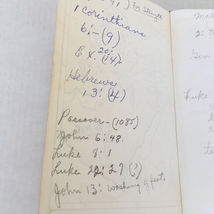 1) to Steph
1 Corinthians
6:-(9)
Ex. 20:(14)
Hebrews
13:(4)
Passover-(1085)
John 6:48.
Luke 8:1
Luke 22:27(?)
John 13: washing of feet.
Ma
2:
Gen
Luke